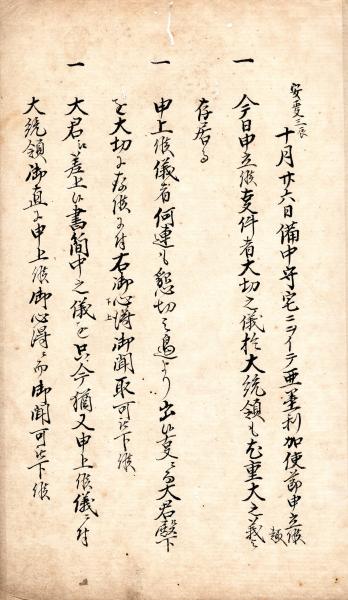 安政三辰
十月廿六日備中守宅ニ而亜墨利加使節申立候
一 今日申立候事件者大切之儀於大統領も尤重大之儀ニ
存居る
一 申上候儀者何連も懇切之過より出候事ニ而大君殿下
を大切ニ存候ニ付右御心得御聞取可被下候
上
下
一 大君江差上候書簡中之儀を只今猶又申上候儀ニ付
大統領御直ニ申上候御心得ニ而御聞可被下候